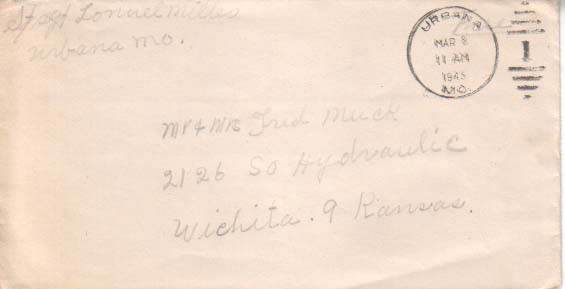 S/Sgt Lonnel Miller
Urbana Mo.
URBANA
MAR 8
11 AM
1945
MO.
1
Mr & Mrs Fred Muck
2126 So Hydraulic
Wichita. 9 Kansas.